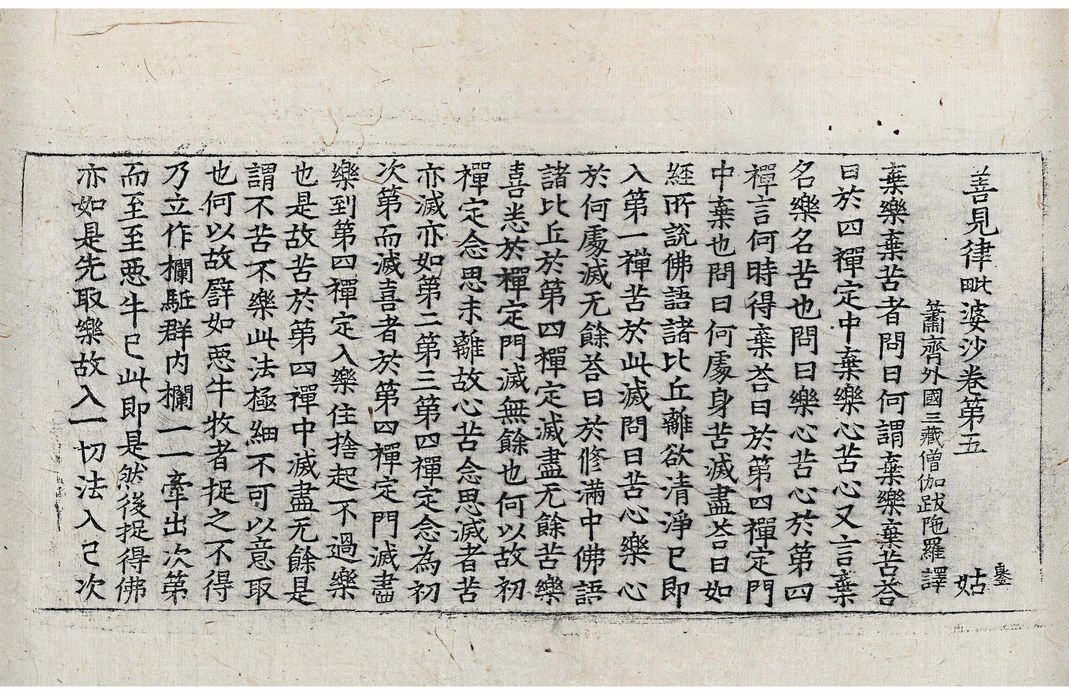 善見律毗婆沙卷第五 姑
蕭齊外國三藏僧伽跋陁羅 譯
棄樂棄苦者問曰何謂棄樂棄苦荅
曰於四禪定中棄樂心苦心又言棄
名樂名苦也問曰樂心苦心於第四
禪言何時得棄荅曰於第四禪定門
中棄也問曰何處身苦滅盡荅曰如
經所說佛語諸比丘離欲清淨已即
入第一禪苦於此滅問曰苦心樂心
於何處滅无餘荅曰於修滿中佛語
諸比丘於第四禪定滅盡无餘苦樂
喜恚於禪定門滅無餘也何以故初
禪定念思未離故心苦念思滅者苦
亦滅亦如第二第三第四禪定念為初
次第而滅喜者於第四禪定門滅盡
樂到第四禪定入樂住捨起不過樂
也是故苦於第四禪中滅盡无餘是
謂不苦不樂此法極細不可以意取
也何以故譬如惡牛牧者捉之不得
乃立作欄駈群內欄一一牽出次第
而至至惡牛已此即是然後捉得佛
亦如是先取樂故入一切法入已次